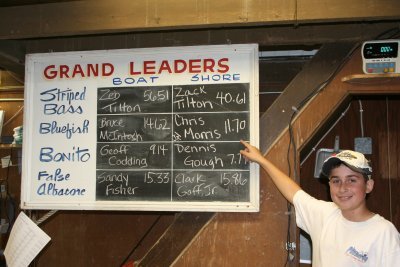 GRAND LEADERS
BOAT SHORE
Striped Bass
Zeb Tilton 56.51
Zack Tilton 40.61
Bluefish
Bruce McIntosh 14.62
Chris Morris 11.70
Bonito
Geoff Codding 9.14
Dennis Gough 7.7
False Albacore
Sandy Fisher 15.33
Clark Goff, Jr. 15.86